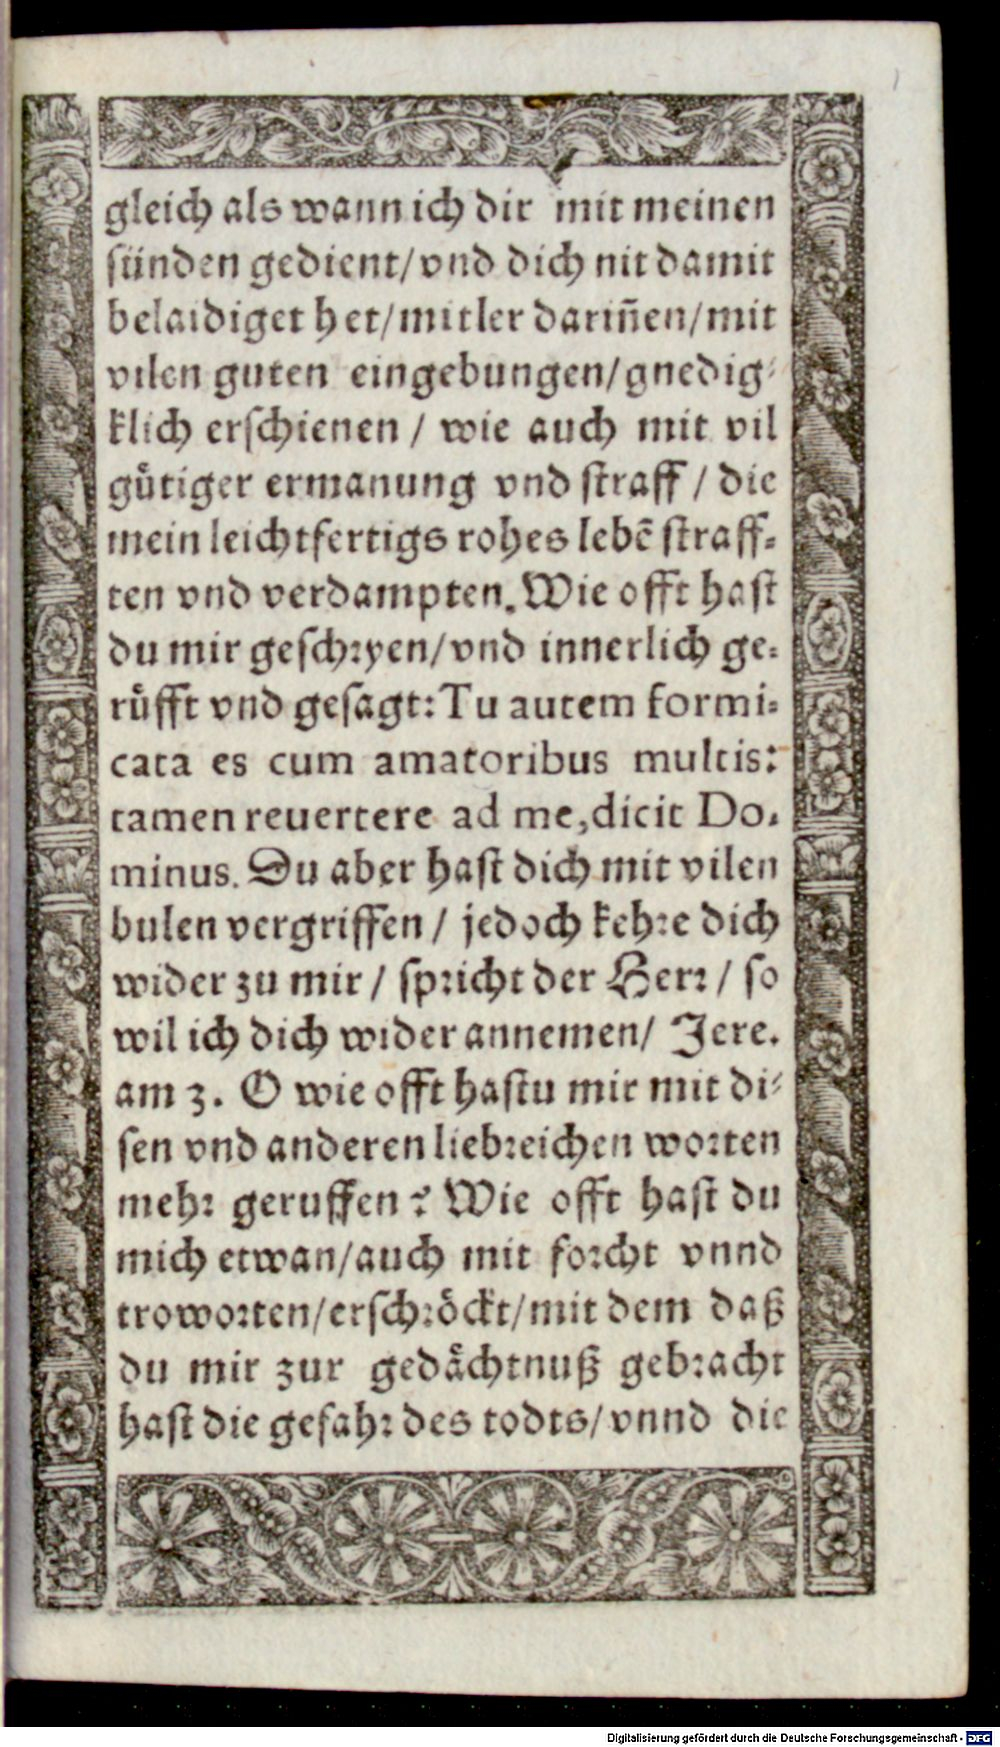 gleich als wann ich dir mit meinen
sünden gedient/vnd dich nit damit
belaidiget het/mitler dariñen/mit
vilen guten eingebungen/gnedig⸗
klich erschienen / wie auch mit vil
guͤtiger ermanung vnd straff / die
mein leichtfertigs rohes lebẽ straff⸗
ten vnd verdampten. Wie offt hast
du mir geschryen/vnd innerlich ge⸗
ruͤfft vnd gesagt: Tu autem formi⸗
cata es cum amatoribus multis:
tamen reuertere ad me, dicit Do⸗
minus. Du aber hast dich mit vilen
bulen vergriffen / jedoch kehre dich
wider zu mir / spricht der Herr / so
wil ich dich wider annemen/ Jere.
am 3. O wie offt hastu mir mit di⸗
sen vnd anderen liebreichen worten
mehr geruffen? Wie offt hast du
mich etwan/auch mit forcht vnnd
troworten/erschroͤckt/mit dem daß
du mir zur gedaͤchtnuß gebracht
hast die gefahr des todts/vnnd die
Digitalisierung gefördert durch die Deutsche Forschungsgemeinschaft - DFG